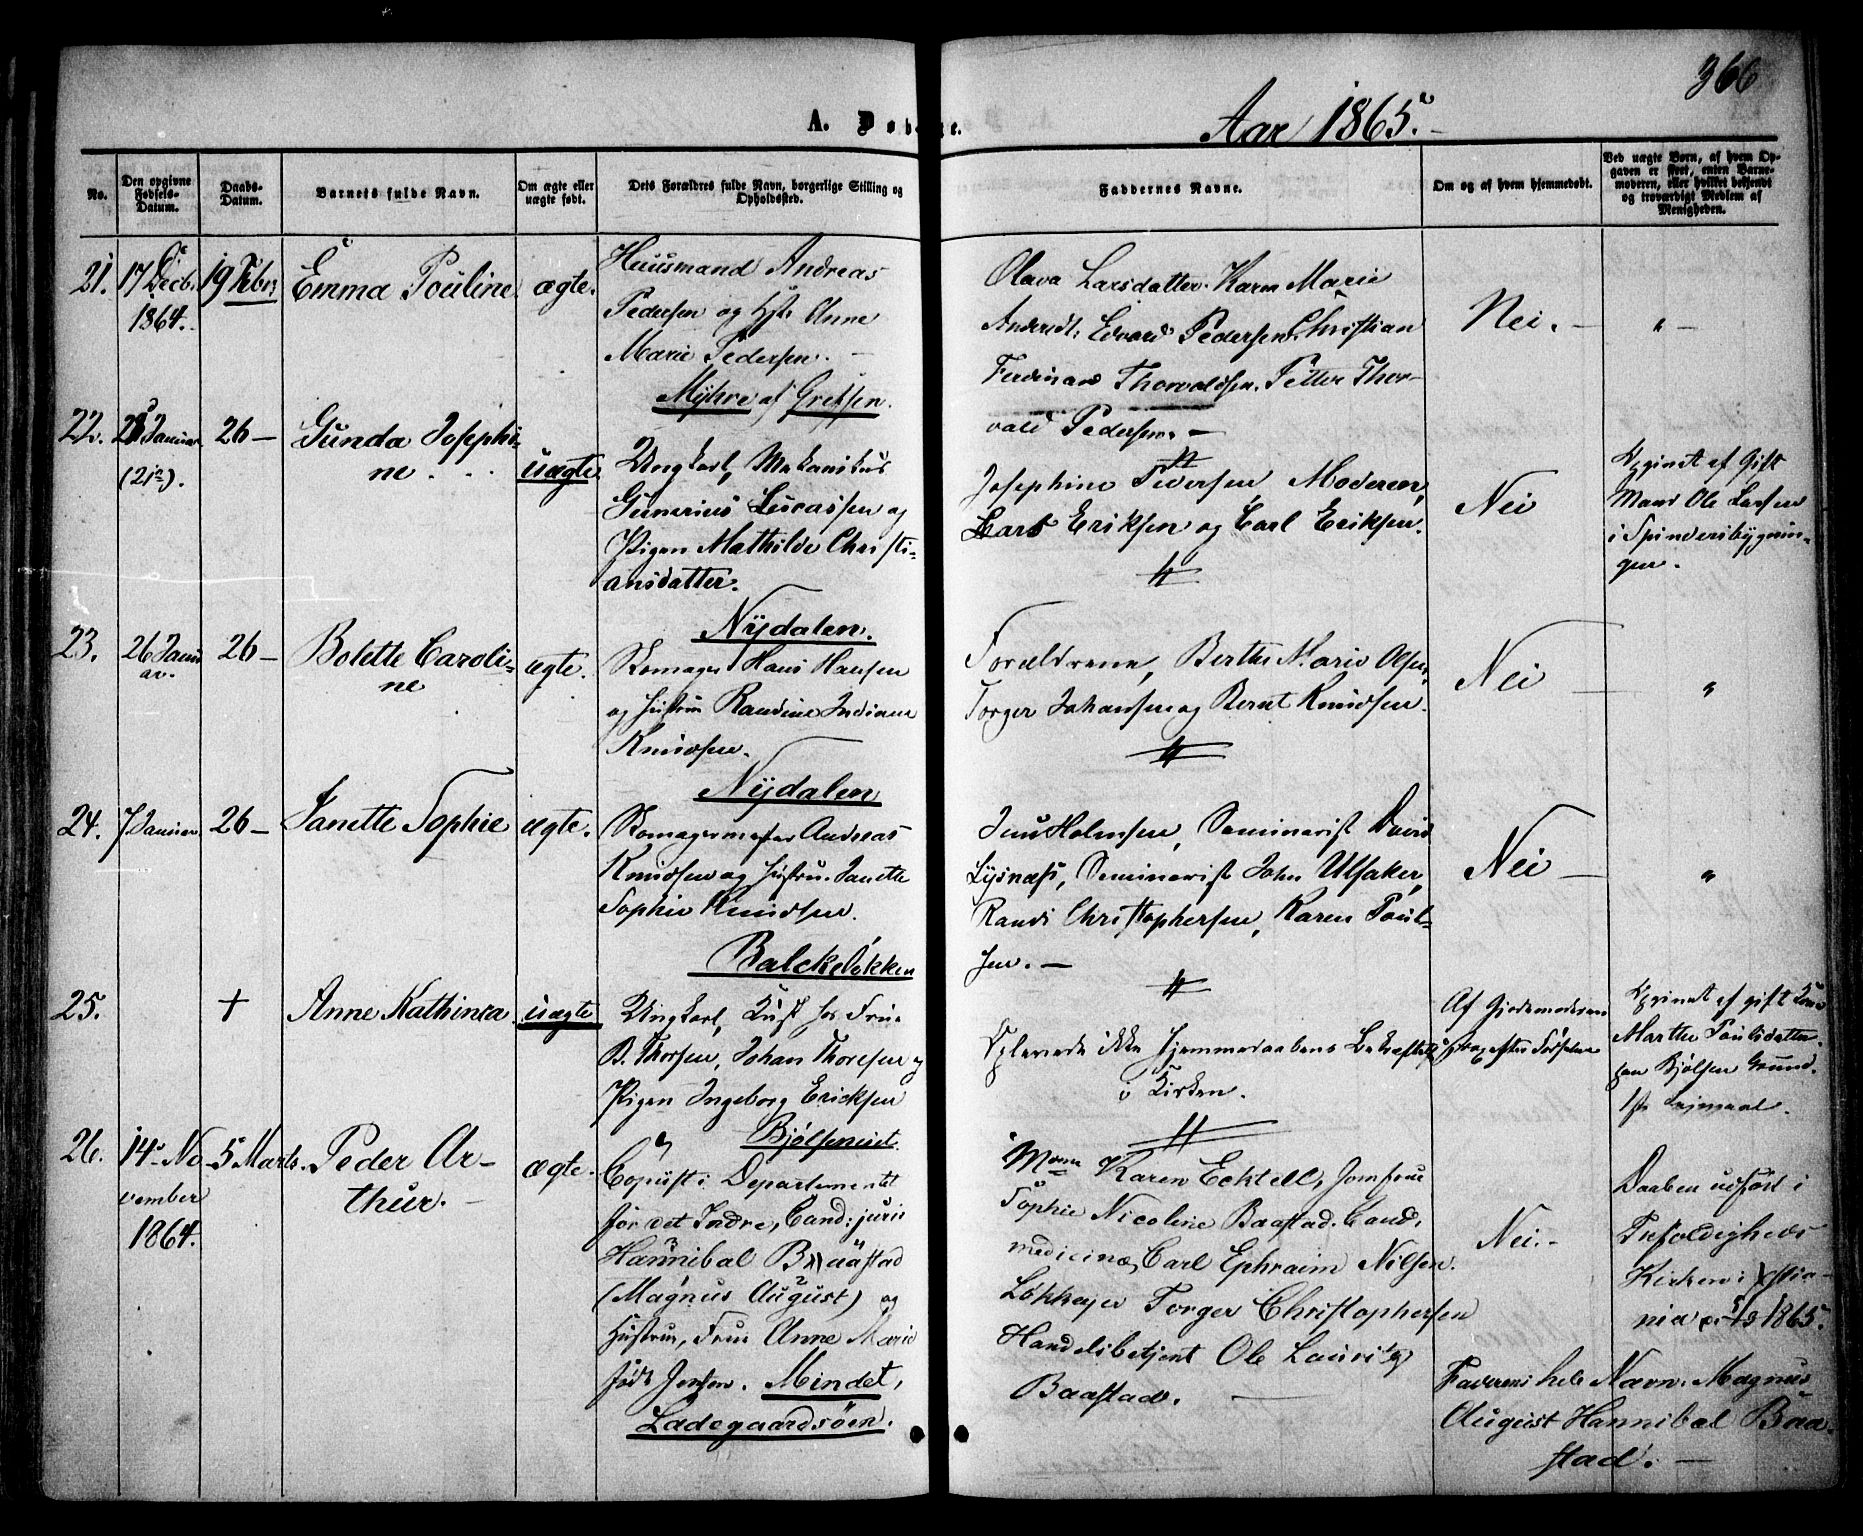 366
A. Døbte.
Aar 1865.
No.
Den opgivne Fødsels-Datum.
Daabs-Datum.
Barnets fulde Navn.
Om ægte eller uægte født.
Dets Forældres fulde Navn, borgerlige Stilling og Opholdssted.
Faddernes Navne.
Om og af hvem hjemmedøbt.
Ved uægte Born, af hvem Opgaven er skeet, enten Barnemoderen, eller hvilket bekjendt og troværdigt Medlem af Menigheden.
21.
17 Decb.
1864.
19 Febr.
Emma Pouline
ægte.
Huusmand Andreas
Pedersen og Hst. Anne
Marie Pedersen.
Myhre af Grefsen.
Olava Larsdatter. Karen Marie
Andersdt. Edvard Pedersen. Christian
Ferdinand Thorvaldsen. Petter Thor-
vald Pedersen. -
Nei. -
" -
22.
Januar
(21de).
26 -
Gunda Josephi-
ne
uægte
Ungkarl, Mekanikus
Gunerius Lucassen og
Pigen Mathilde Christi-
ansdatter.
Nydalen.
Josephine Pedersen Moderen,
Lars Eriksen og Carl Eriksen.
Nei
Opginet af Gift
Mand Ole Larsen
i Spinderibygnin-
gen.
23.
26 Janu
ar.
26 -
Bolette Caroli-
ne
ægte.
Skomager Hans Hansen
og Hustru Randine Indiane
Knudsen.
Nydalen
Forældrene, Berthe Marie Olsen,
Torger Johansen og Bernt Knudsen.
Nei
"
24.
7 Januar
26 -
Janette Sophie
ægte.
Skomagermester Andreas
Knudsen og Hustru Janette
Sophie Knudsen.
Balckeløkken
Jens Holmsen, Seminarist David
Lysnæs, Seminarist John Ulsaker,
Randi Christophersen, Karen Poul-
sen. -
Nei -
"
25.
+
Anne Kathinca
uægte
Ungkarl, Kusk hos Frue
B. Thorsen, Johan Thoresen og
Pigen Ingeborg Ericksen
Bjølseneiet.
Oplevede ikke Hjemmedaabens Bekræftelse
i Kirken.
Af Gjordemoderen
strax efter Fødselen
Opginet af gift Kone
Marthe Poulsdatter
paa Bjølsen Grund.
1ste Leiermaal.
26.
14de No
vember
1864.
5 Marts.
Peder Ar-
thur. -
ægte.
Copiist i Departementet
for det Indre, Cand: juris
Hannibal Baastad
(Magnus August) og
Hustru, Frue Anne Marie
født Jensen. Mindet,
Ladegaardsøen.
Mdme Karen Ecktell, Jomfrue
Sophie Nicoline Baastad. Cand.
medicinæ, Carl Ephraim Nilsen.
Løkkeejer Torger Christophersen
Handelsbetjent Ole Lauritz
Baastad.
Nei. -
Daaben udført i
Trefoldigheds
Kirken i Xstia-
nia 5/3 1865.
Faderens hele Navn: Magnus
August Hannibal Baa-
stad. -